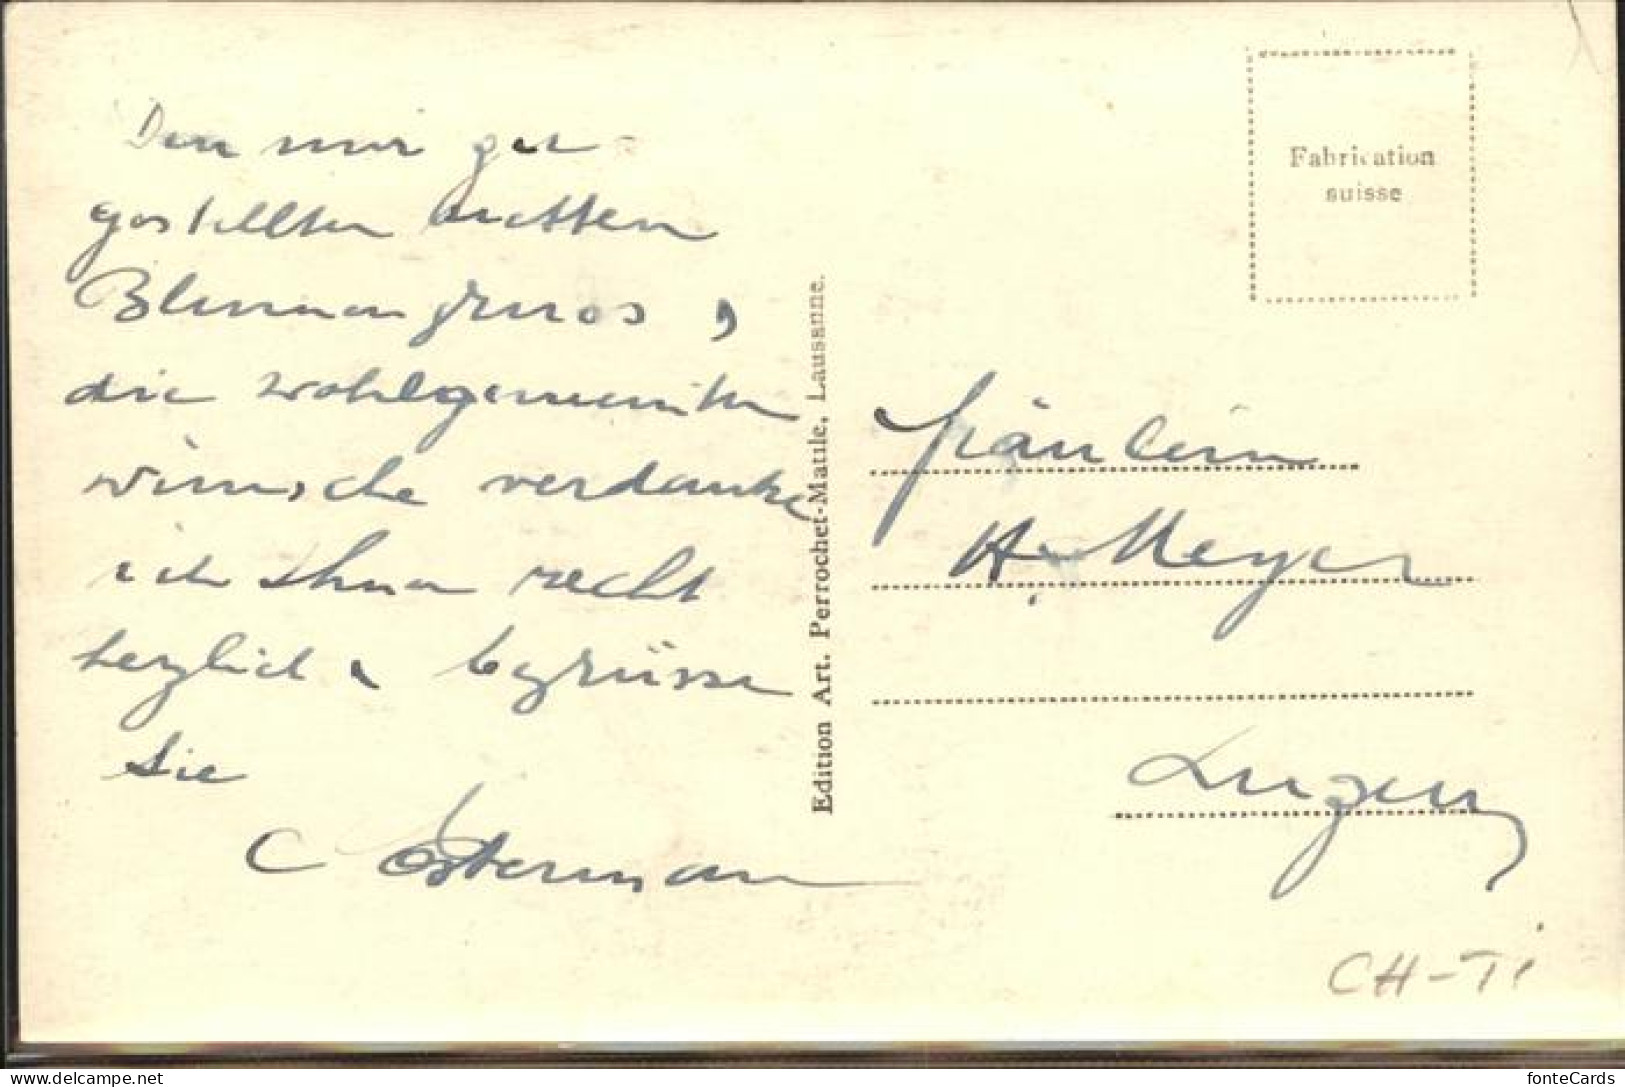 Den mir zu-
gestellten netten
Blumengruss,
die wohlgemeinten
Wünsche verdanke
ich Ihnen recht
herzlich & begrüsse
Sie
C Ostermann
Edition Art. Perrochet-Matile, Lausanne.
Fabrication
suisse
Fräulein
H. Meyer
Luzern
CH-TI
delcampe.net
fonteCards